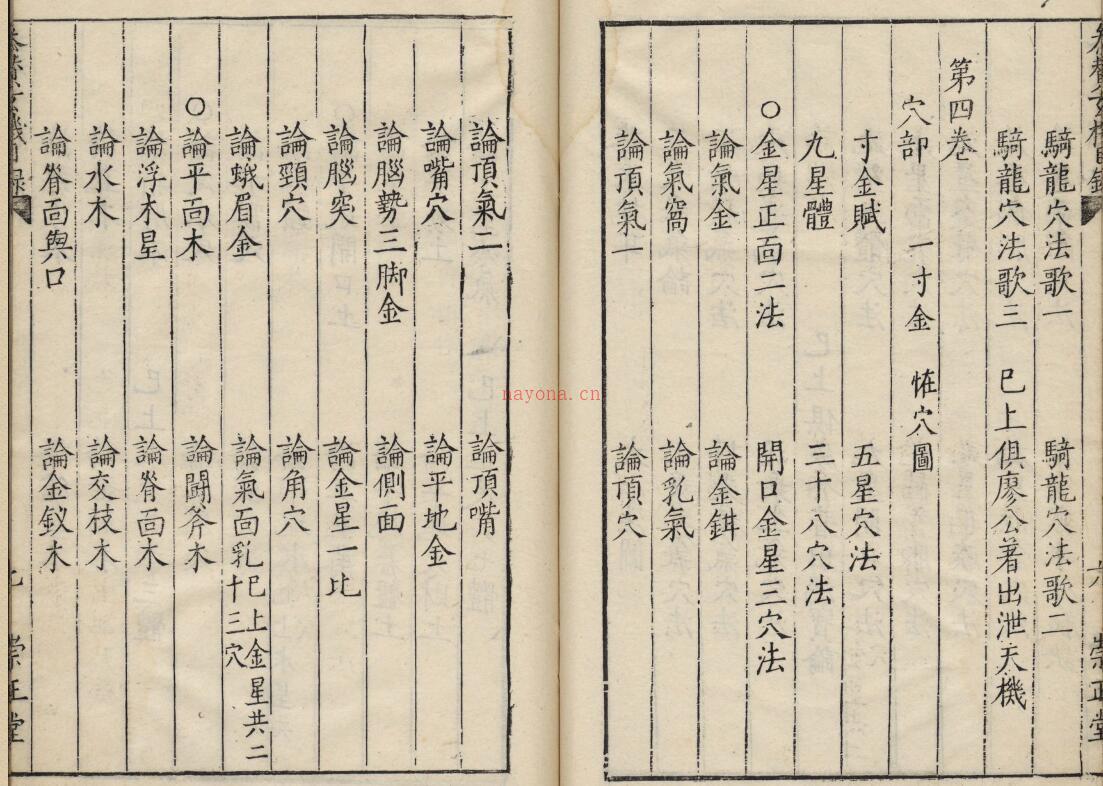 騎龍穴法歌一　騎龍穴法歌二
騎龍穴法歌三　已上俱廖公著出泄天機
第四卷
穴部　一寸金　恠穴圖
寸金賦　五星穴法
九星體　三十八穴法
○金星正面二法　開口金星三穴法
論氣金　論金鉺
論氣窩　論乳氣
論頂氣一　論頂穴
nayona.cn
論頂氣二　論頂嘴
論嘴穴　論平地金
論腦勢三脚金　論側面
論腦突　論金星一比
論頸穴　論角穴
論蛾眉金　論氣面乳已上金星共二十三穴
○論平面木　論鬭斧木
論浮木星　論脊面木
論水木　論交枝木
論脊面與口　論金釵木
崇正堂
六　崇正堂